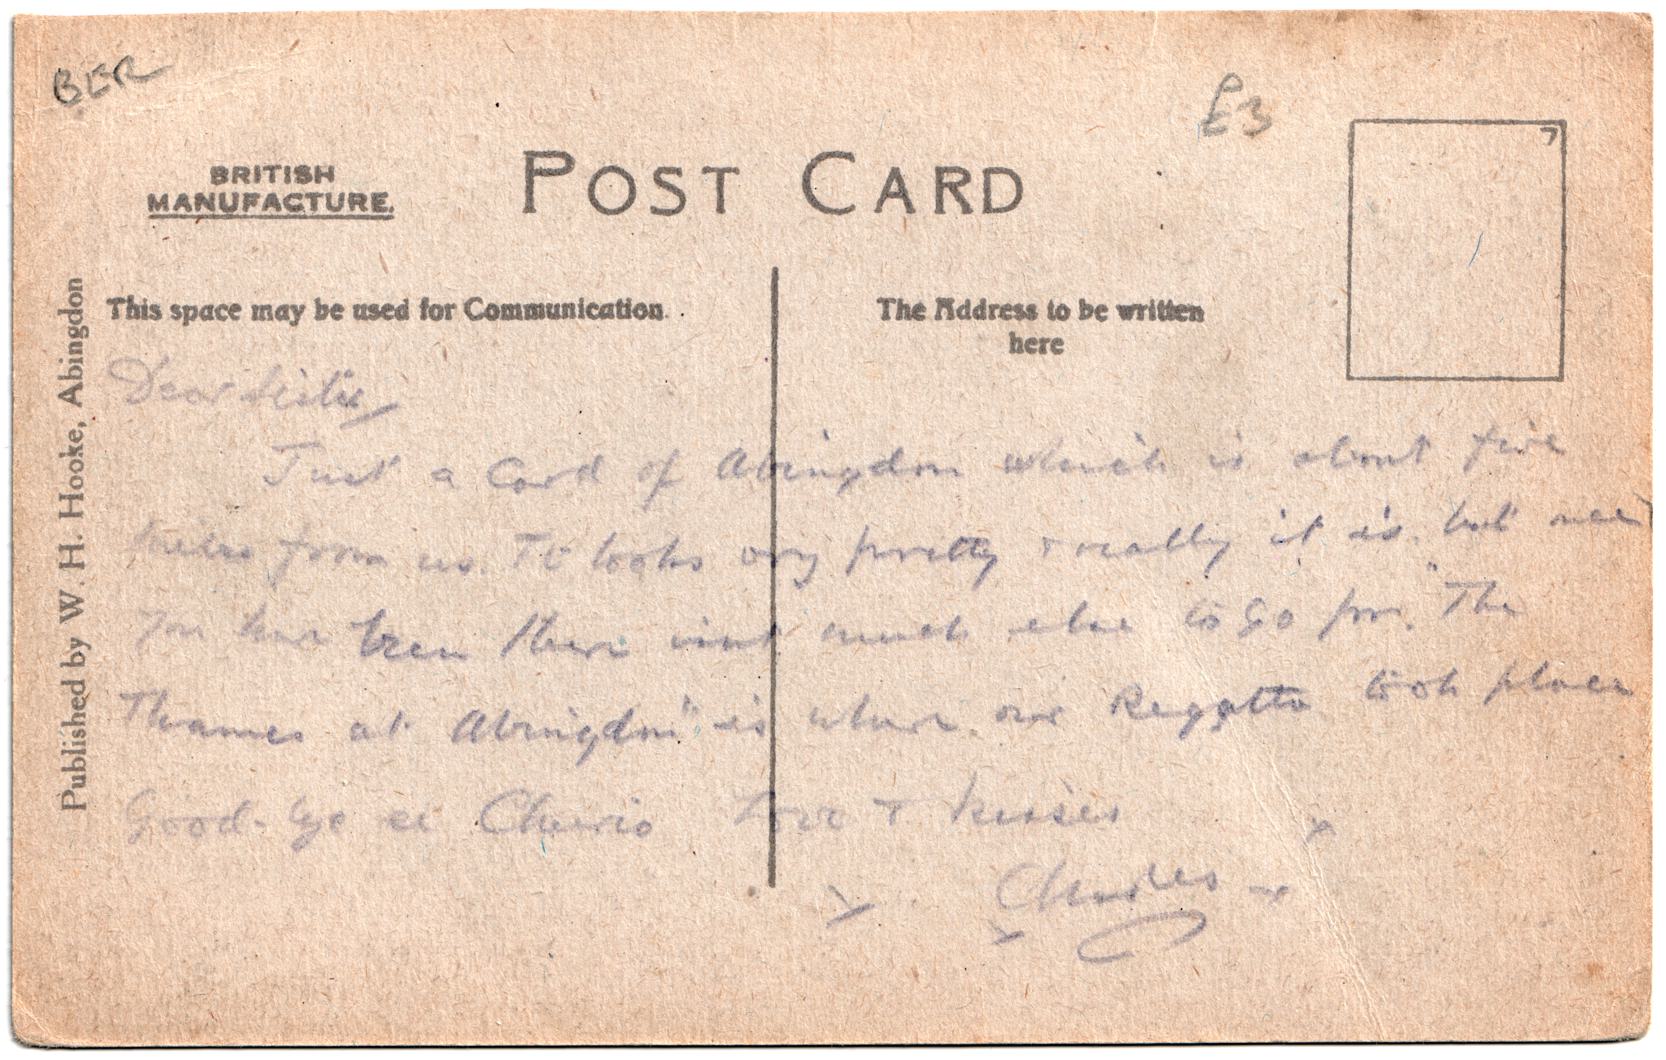 BER
£3
BRITISH
MANUFACTURE.
POST CARD
This space may be used for Communication.
The Address to be written
here
Published by W. H. Hooke, Abingdon
Dear
Just a Card of Abingdon which is about five
miles from us. It looks very pretty & really it is. but once
you have been there isnt much else to go for. "The
Thames at Abingdon" is where our Regatta took place
Good-bye Cheerio Love & kisses
Charles